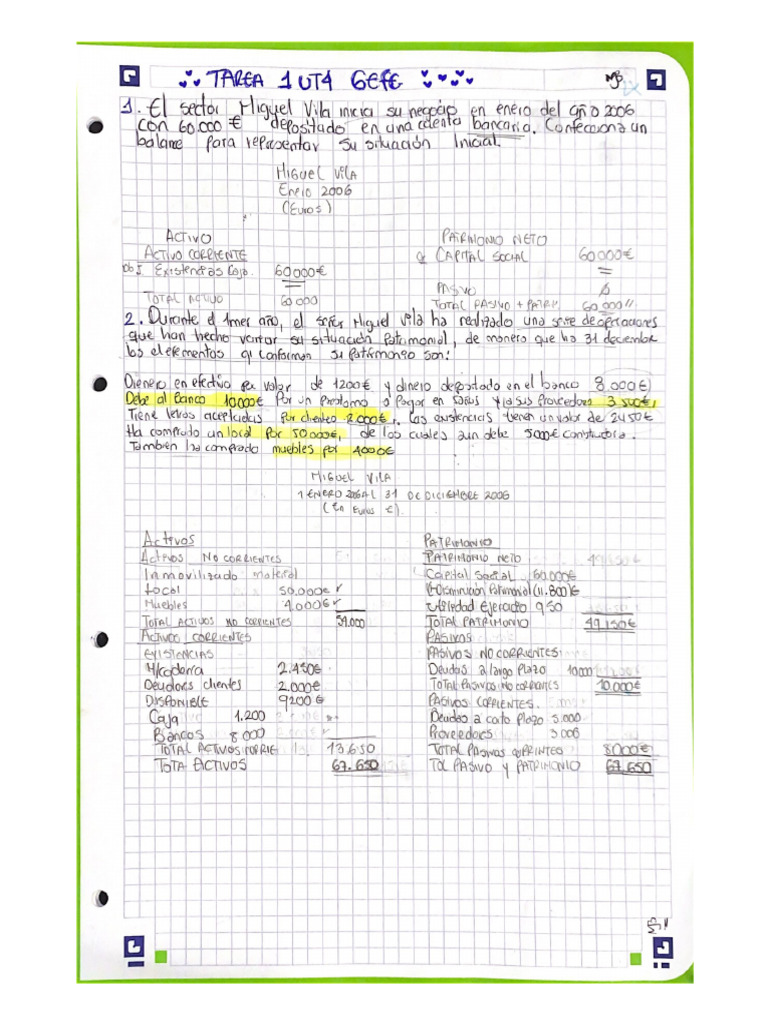 TAREA 1 UT4 GEFE
1. El sector Miguel Vila inicia su negocio en enero del año 2006
con 60.000 € depositado en una cuenta bancaria. Confecciona un
balance para representar su situación Inicial.
MIGUEL VILA
Enero 2006
(Euros)
ACTIVO
ACTIVO CORRIENTE
Existencias Caja. 60000€
TOTAL ACTIVO 60000
PATRIMONIO NETO
CAPITAL SOCIAL 60000€
PASIVO
TOTAL PASIVO + PATRI. 60000
2. Durante el 1mer año, el señor Miguel Vila ha realizado una serie de operaciones
que han hecho variar su situación Patrimonial, de manera que ha 31 deciembre
los elementos q conforman su Patrimonio son:
Dienero en efectivo por valor de 1200€ y dinero depositado en el banco 8.000€
Debe al banco 10000€ Por un prestamo a Pagar en 5años y a sus proveedores 3.500€,
Tiene letras aceptadas por cliente 2.000€, Las existencias tienen un valor de 2450€
Ha comprado un local por 50000€, de los cuales aun debe 5000€ constructora.
Tambien ha comprado muebles por 4000€
MIGUEL VILA
1 ENERO 2006 AL 31 DE DICIEMBRE 2006
(En Euros €)
Activos
Activos NO CORRIENTES
Inmovilizado material
Local 50.000€
Muebles 4.000€
TOTAL ACTIVOS NO CORRIENTES 54.000
ACTIVOS CORRIENTES
EXISTENCIAS
2.450€
Deudores clientes 2.000€
DISPONIBLE 9200€
Caja 1.200
Bancos 8.000
TOTAL ACTIVOS CORRIE 13.650
TOTA ACTIVOS 67.650
PATRIMONIO
PATRIMONIO NETO
Capital Social 60.000€
Disminución Patrimonial (11.800)€
Utilidad Ejercicio 950
TOTAL PATRIMONIO 49.150€
PASIVOS
PASIVOS NO CORRIENTES
Deudas a largo Plazo 10000
TOTAL PASIVOS NO CORRIENTES 10.000€
PASIVOS CORRIENTES.
Deudas a corto Plazo 5.000
Proveedores 3.000
TOTAL PASIVOS CORRIENTES 8000€
TOL PASIVO Y PATRIMONIO 67.650